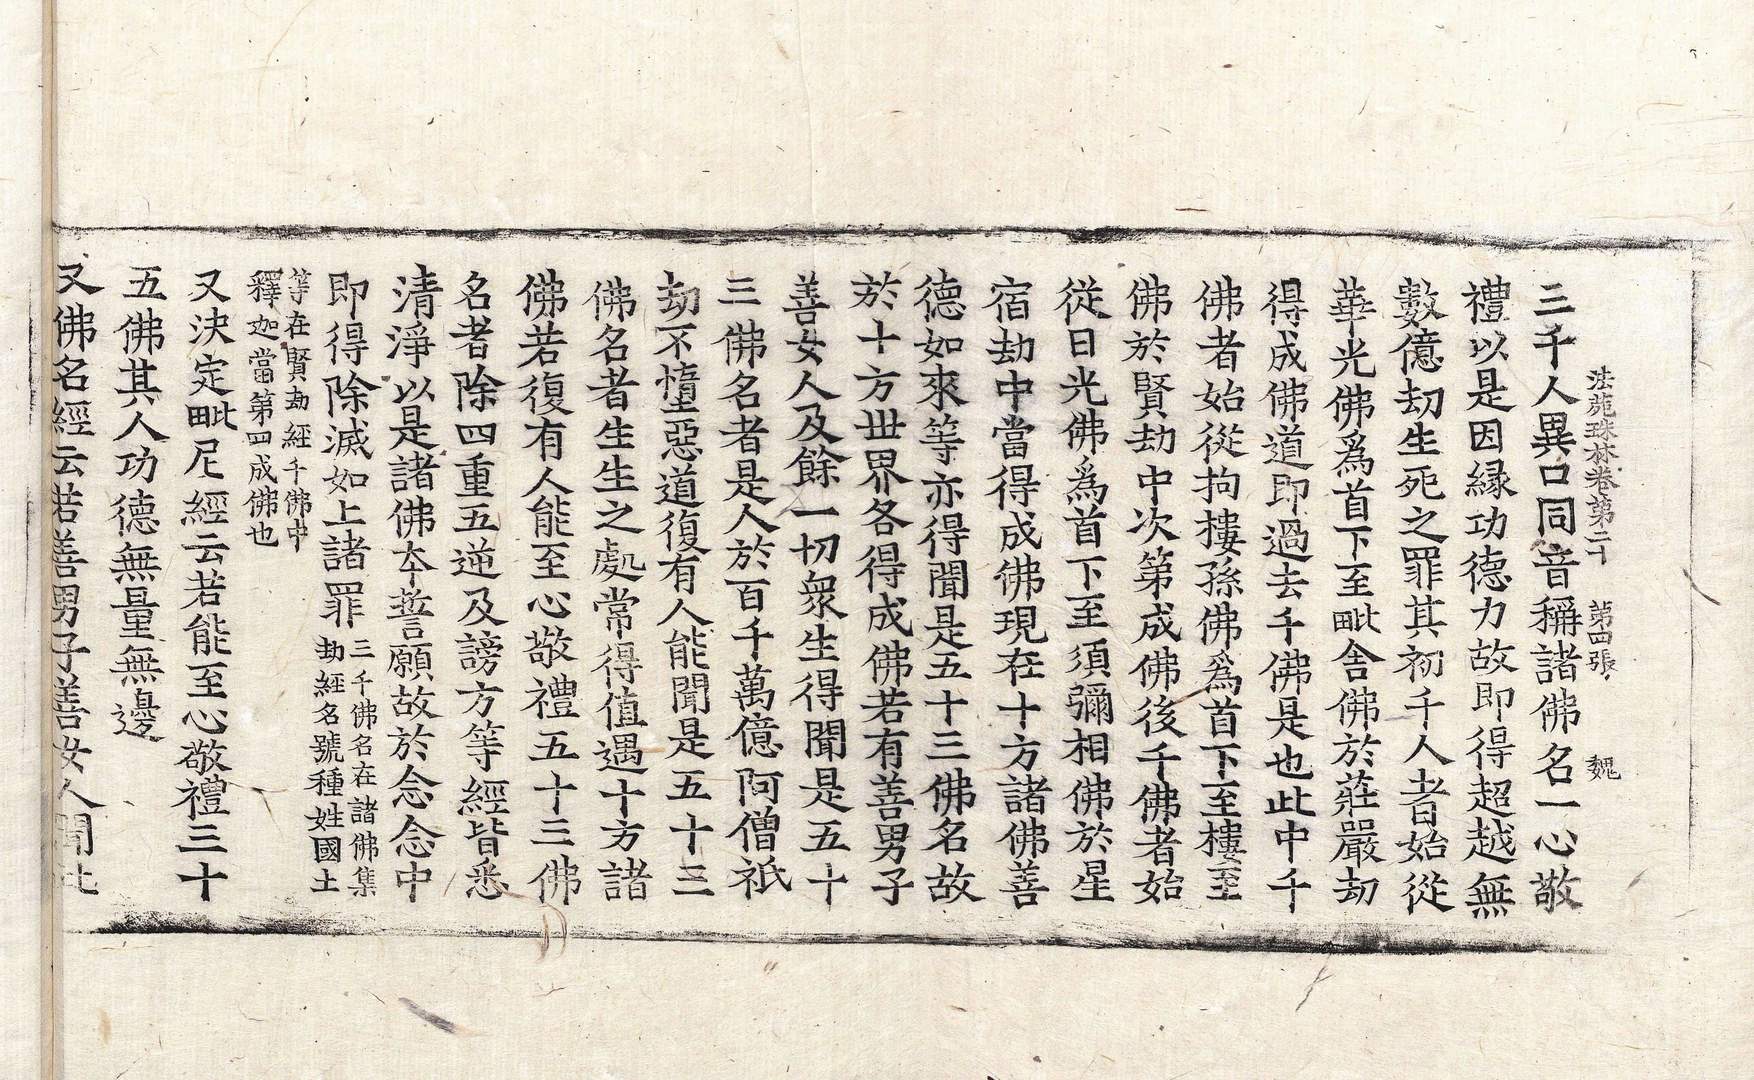 法苑珠林卷第二十　第四張　魏
三千人異口同音稱諸佛名一心敬
禮以是因緣功德力故即得超越無
數億劫生死之罪其初千人者始從
華光佛爲首下至毗舍佛於莊嚴劫
得成佛道即過去千佛是也此中千
佛者始從拘樓孫佛爲首下至樓至
佛於賢劫中次第成佛後千佛者始
從日光佛爲首下至須彌相佛於星
宿劫中當得成佛現在十方諸佛善
德如來等亦得聞是五十三佛名故
於十方世界各得成佛若有善男子
善女人及餘一切衆生得聞是五十
三佛名者是人於百千萬億阿僧祇
劫不墮惡道復有人能聞是五十三
佛名者生生之處常得值遇十方諸
佛若復有人能至心敬禮五十三佛
名者除四重五逆及謗方等經皆悉
清淨以是諸佛本誓願故於念念中
即得除滅如上諸罪三千佛名在諸佛集
劫經名號種姓國土
等在賢劫經千佛中
釋迦當第四成佛也
又決定毗尼經云若能至心敬禮三十
五佛其人功德無量無邊
又佛名經云若善男子善女人聞此